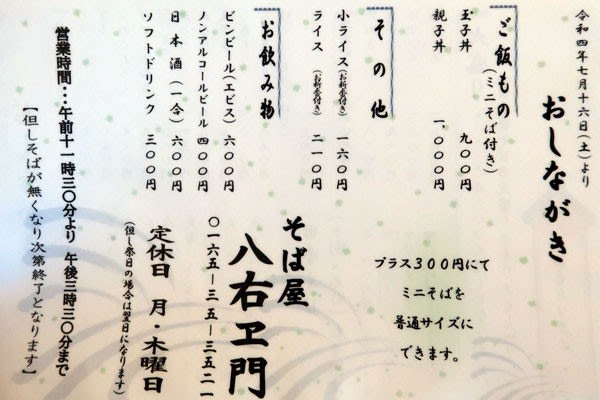 令和四年七月十六日（土）より
おしながき
ご飯もの
（ミニそば付き）
玉子丼 九〇〇円
親子丼 一、〇〇〇円
プラス３００円にて
ミニそばを
普通サイズに
できます。
その他
小ライス（お新香付き） 一六〇円
ライス（お新香付き） 二一〇円
お飲み物
ビンビール（エビス） 六〇〇円
ノンアルコールビール 四〇〇円
日本酒（一合） 六〇〇円
ソフトドリンク 三〇〇円
そば屋
八右ヱ門
〇一六五－三五－三五二一
定休日 月・木曜日
（但し祭日の場合は翌日になります）
営業時間…午前十一時三〇分より 午後三時三〇分まで
【但しそばが無くなり次第終了となります】